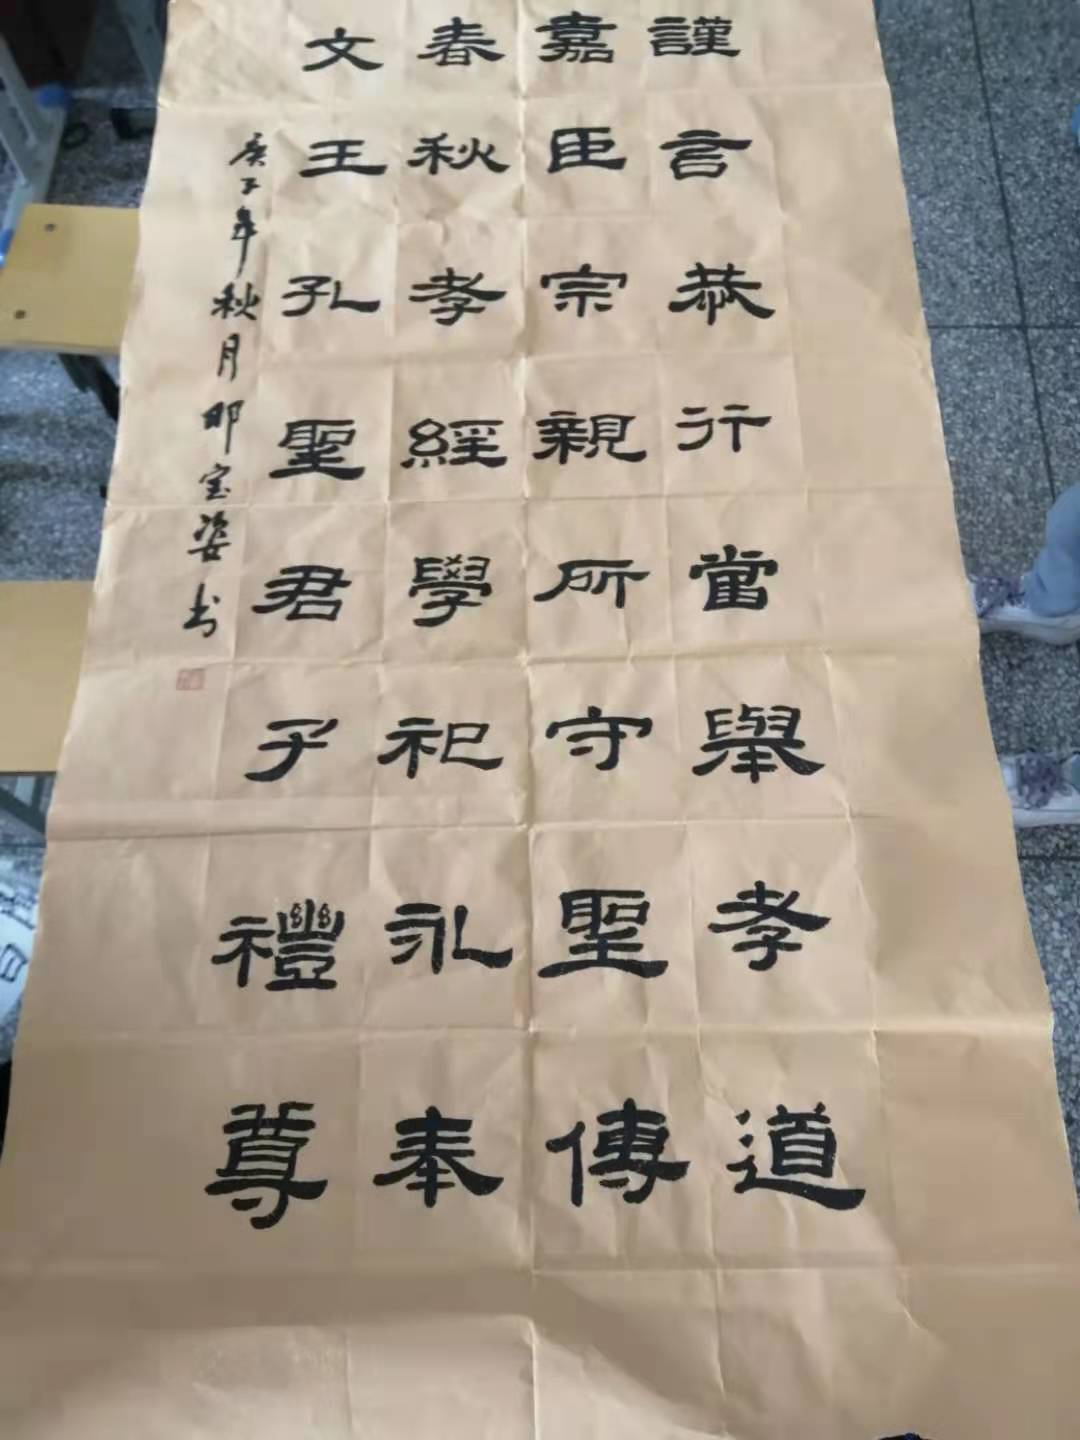 謹言恭行當舉孝道
嘉臣宗親所守聖傳
春秋孝經學祀永奉
文王孔聖君子禮尊
庚子年秋月邢宝姿书